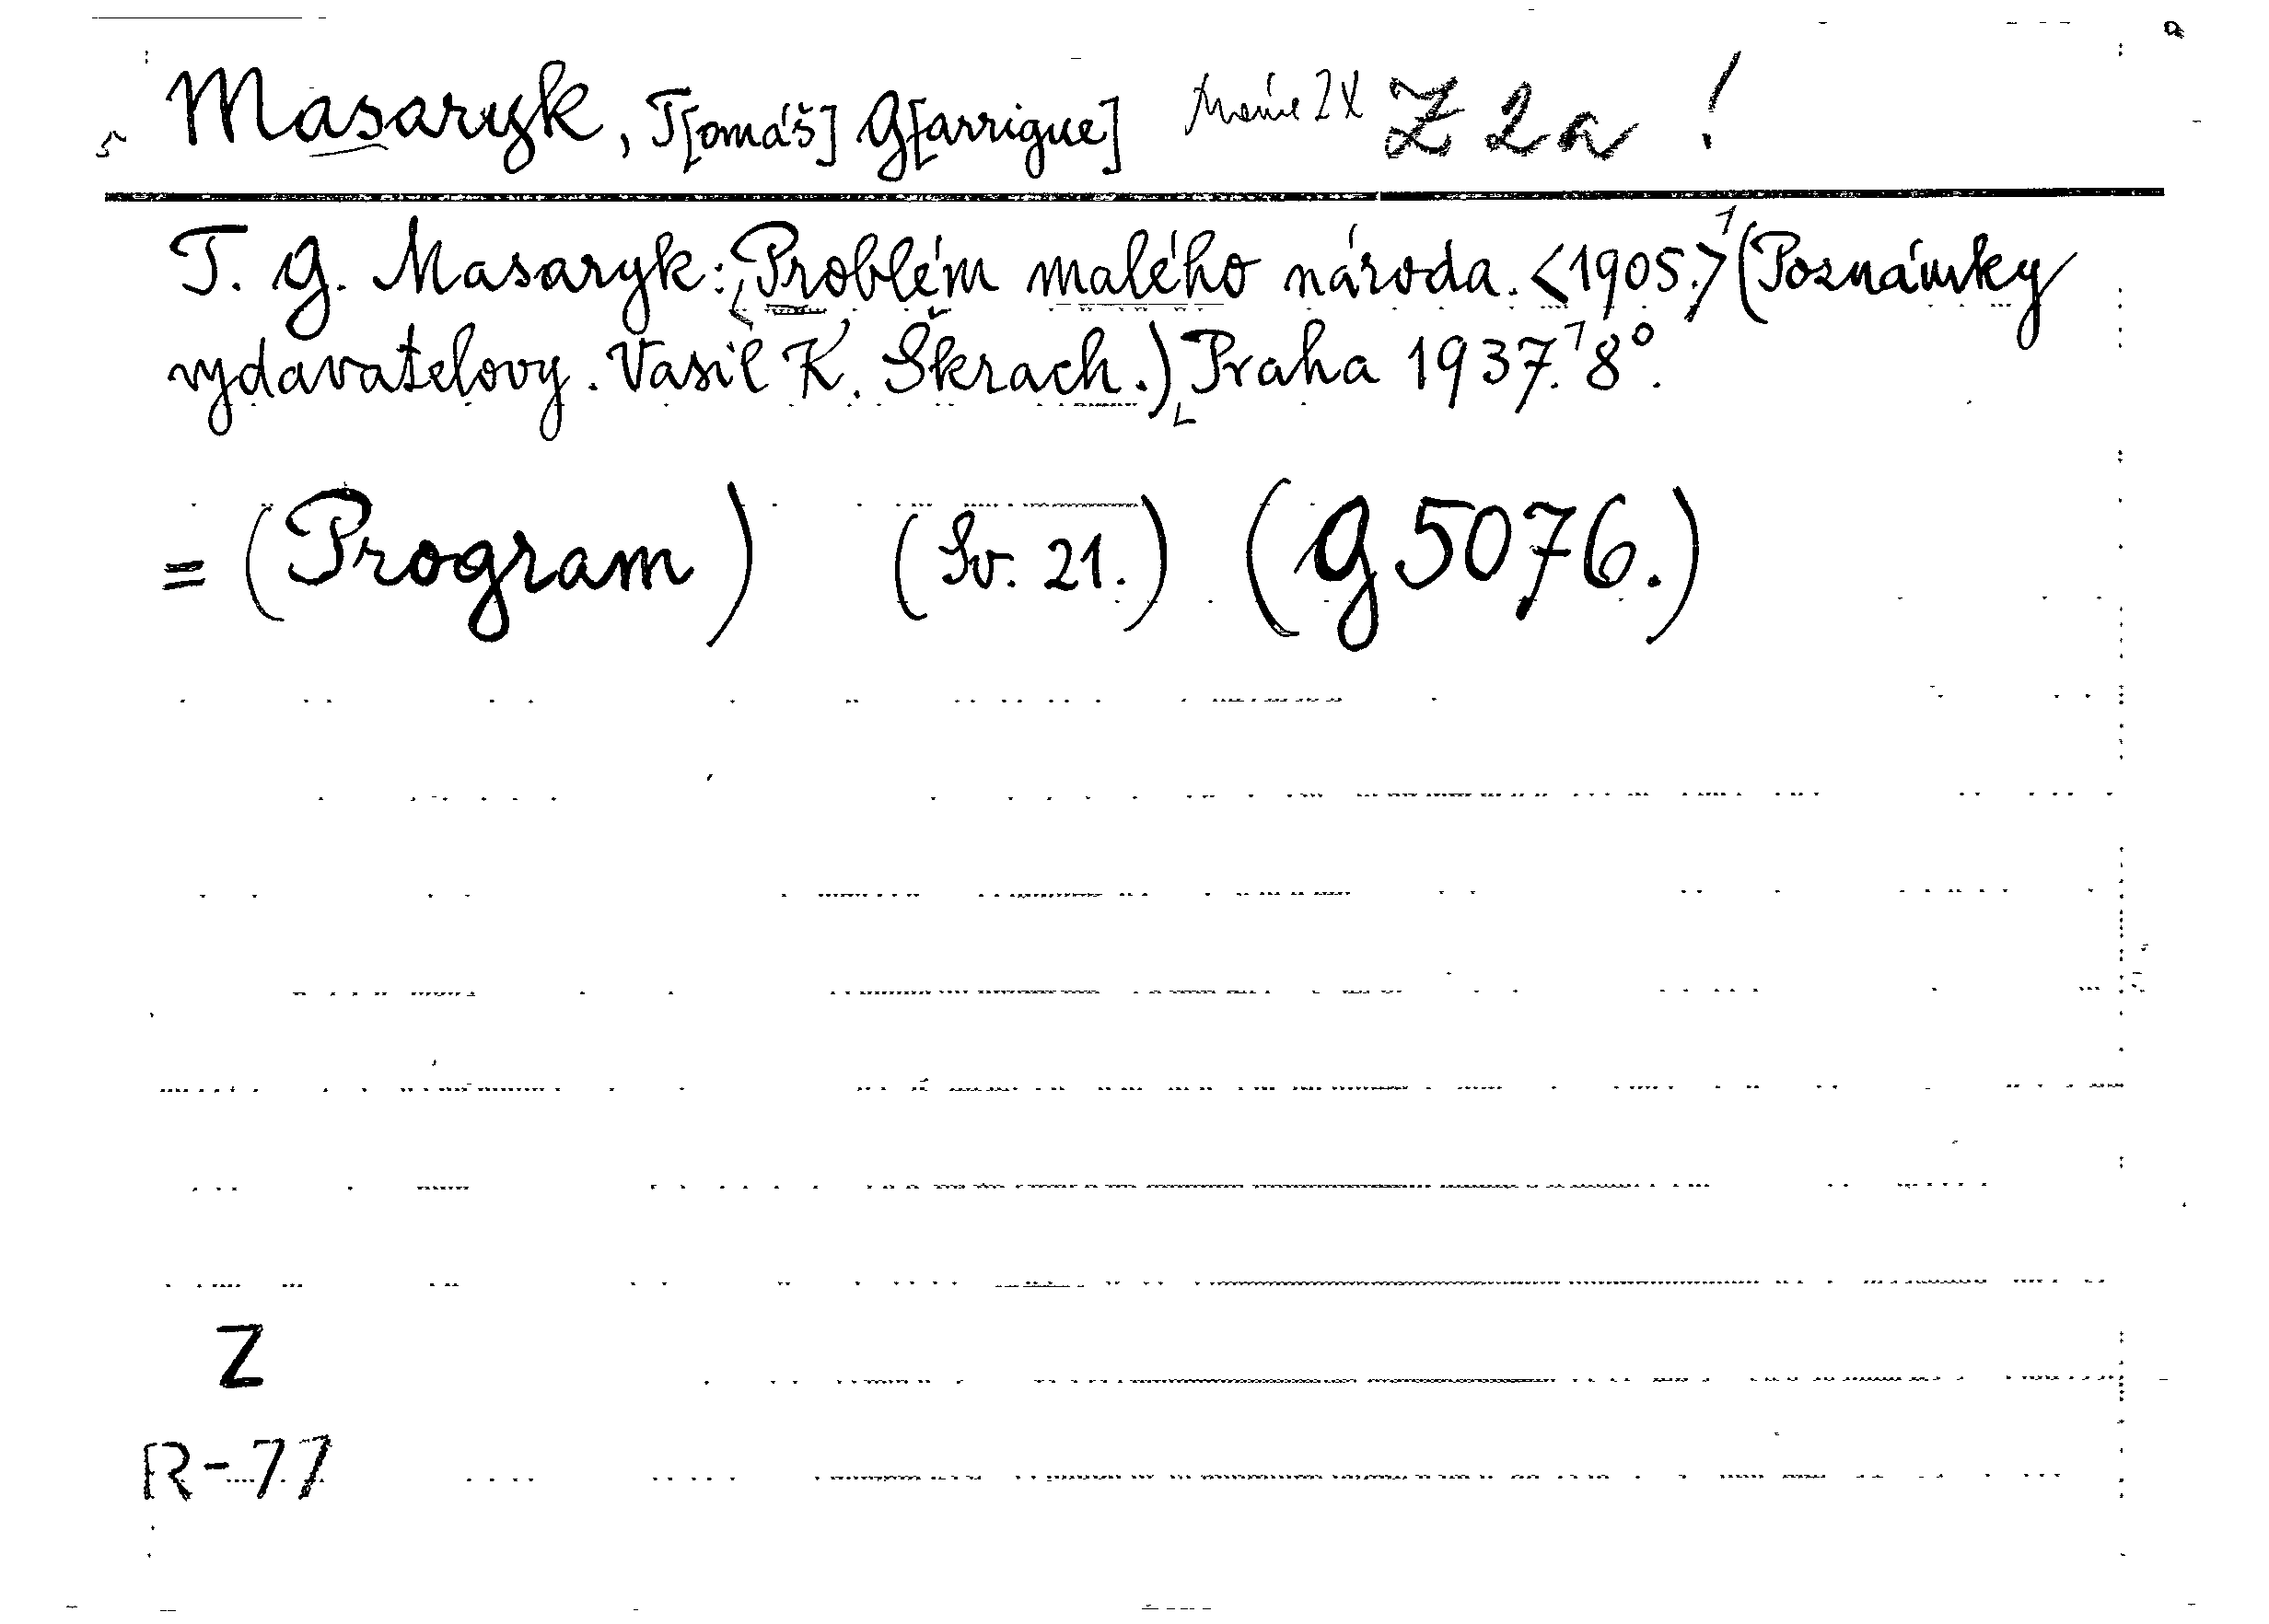 Masaryk, T[omáš] G[arrigue] máme 2x Z 2a !
T. G. Masaryk: Problém malého národa. <1905.> (Poznámky
vydavatelovy. Vasil K. Škrach.) Praha 1937. 8°.
= (Program) (Sv. 21.) (G 5076.)
Z
R-77